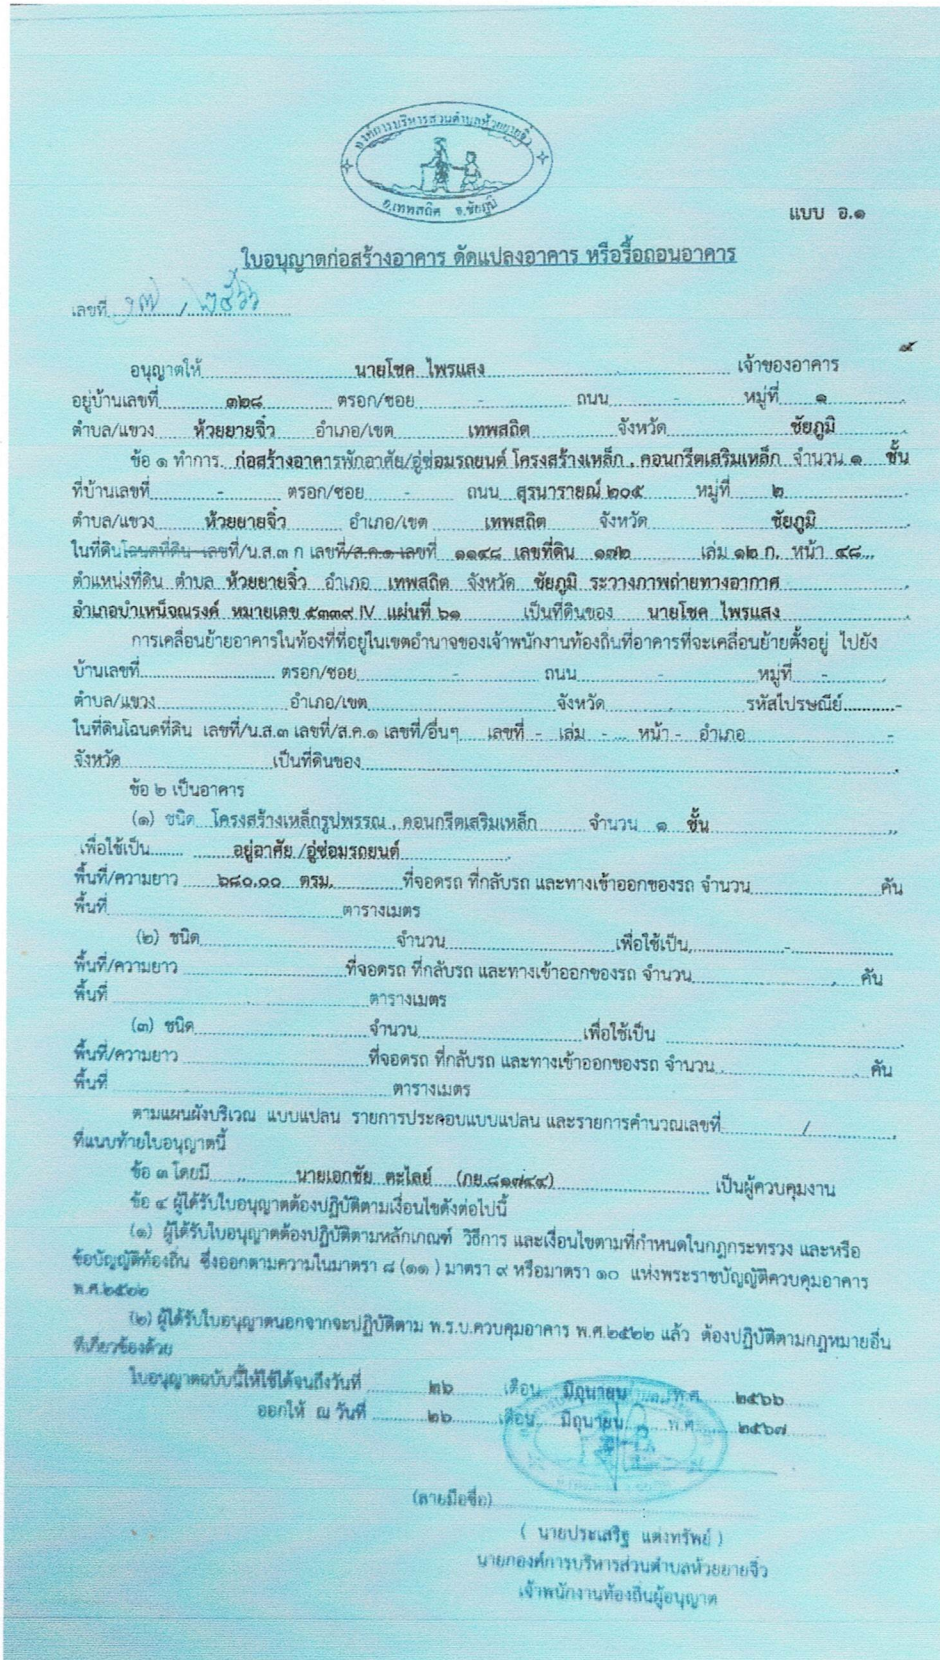 องค์การบริหารส่วนตำบลห้วยยายจิ๋ว
อ.เทพสถิต จ.ชัยภูมิ
แบบ อ.๑
ใบอนุญาตก่อสร้างอาคาร ดัดแปลงอาคาร หรือรื้อถอนอาคาร
เลขที่ ๑๗ / ๒๕๖๖
อนุญาตให้ นายโชค ไพรแสง เจ้าของอาคาร
อยู่บ้านเลขที่ ๓๒๘ ตรอก/ซอย - ถนน - หมู่ที่ ๑
ตำบล/แขวง ห้วยยายจิ๋ว อำเภอ/เขต เทพสถิต จังหวัด ชัยภูมิ
ข้อ ๑ ทำการ ก่อสร้างอาคารพักอาศัย/อู่ซ่อมรถยนต์ โครงสร้างเหล็ก , คอนกรีตเสริมเหล็ก จำนวน ๑ ชั้น
ที่บ้านเลขที่ - ตรอก/ซอย - ถนน สุรนารายณ์ ๒๐๕ หมู่ที่ ๒
ตำบล/แขวง ห้วยยายจิ๋ว อำเภอ/เขต เทพสถิต จังหวัด ชัยภูมิ
ในที่ดินโฉนดที่ดิน เลขที่/น.ส.๓ ก เลขที่/ส.ค.๑ เลขที่ ๑๑๔๘ เลขที่ดิน ๑๗๒ เล่ม ๑๒ ก. หน้า ๔๘
ตำแหน่งที่ดิน ตำบล ห้วยยายจิ๋ว อำเภอ เทพสถิต จังหวัด ชัยภูมิ ระวางภาพถ่ายทางอากาศ
อำเภอบำเหน็จณรงค์ หมายเลข ๕๓๓๙ IV แผ่นที่ ๖๑ เป็นที่ดินของ นายโชค ไพรแสง
การเคลื่อนย้ายอาคารในท้องที่ที่อยู่ในเขตอำนาจของเจ้าพนักงานท้องถิ่นที่อาคารที่จะเคลื่อนย้ายตั้งอยู่ ไปยัง
บ้านเลขที่ ตรอก/ซอย - ถนน - หมู่ที่ -
ตำบล/แขวง อำเภอ/เขต จังหวัด รหัสไปรษณีย์ -
ในที่ดินโฉนดที่ดิน เลขที่/น.ส.๓ เลขที่/ส.ค.๑ เลขที่/อื่นๆ เลขที่ - เล่ม - หน้า - อำเภอ -
จังหวัด เป็นที่ดินของ
ข้อ ๒ เป็นอาคาร
(๑) ชนิด โครงสร้างเหล็กรูปพรรณ , คอนกรีตเสริมเหล็ก จำนวน ๑ ชั้น
เพื่อใช้เป็น อยู่อาศัย /อู่ซ่อมรถยนต์
พื้นที่/ความยาว ๖๘๐.๐๐ ตรม. ที่จอดรถ ที่กลับรถ และทางเข้าออกของรถ จำนวน คัน
พื้นที่ ตารางเมตร
(๒) ชนิด จำนวน เพื่อใช้เป็น -
พื้นที่/ความยาว ที่จอดรถ ที่กลับรถ และทางเข้าออกของรถ จำนวน คัน
พื้นที่ ตารางเมตร
(๓) ชนิด จำนวน เพื่อใช้เป็น
พื้นที่/ความยาว ที่จอดรถ ที่กลับรถ และทางเข้าออกของรถ จำนวน คัน
พื้นที่ ตารางเมตร
ตามแผนผังบริเวณ แบบแปลน รายการประกอบแบบแปลน และรายการคำนวณเลขที่ /
ที่แนบท้ายใบอนุญาตนี้
ข้อ ๓ โดยมี นายเอกชัย ตะไลย์ เป็นผู้ควบคุมงาน
ข้อ ๔ ผู้ได้รับใบอนุญาตต้องปฏิบัติตามเงื่อนไขดังต่อไปนี้
(๑) ผู้ได้รับใบอนุญาตต้องปฏิบัติตามหลักเกณฑ์ วิธีการ และเงื่อนไขตามที่กำหนดในกฎกระทรวง และหรือ
ข้อบัญญัติท้องถิ่น ซึ่งออกตามความในมาตรา ๘ (๑๑ ) มาตรา ๙ หรือมาตรา ๑๐ แห่งพระราชบัญญัติควบคุมอาคาร
พ.ศ.๒๕๒๒
(๒) ผู้ได้รับใบอนุญาตนอกจากจะปฏิบัติตาม พ.ร.บ.ควบคุมอาคาร พ.ศ.๒๕๒๒ แล้ว ต้องปฏิบัติตามกฎหมายอื่น
ที่เกี่ยวข้องด้วย
ใบอนุญาตฉบับนี้ให้ใช้ได้จนถึงวันที่ ๒๖ เดือน มิถุนายน พ.ศ. ๒๕๖๖
ออกให้ ณ วันที่ ๒๖ เดือน มิถุนายน พ.ศ. ๒๕๖๗
(ลายมือชื่อ)
( นายประเสริฐ แต่งทรัพย์ )
นายกองค์การบริหารส่วนตำบลห้วยยายจิ๋ว
เจ้าพนักงานท้องถิ่นผู้อนุญาต